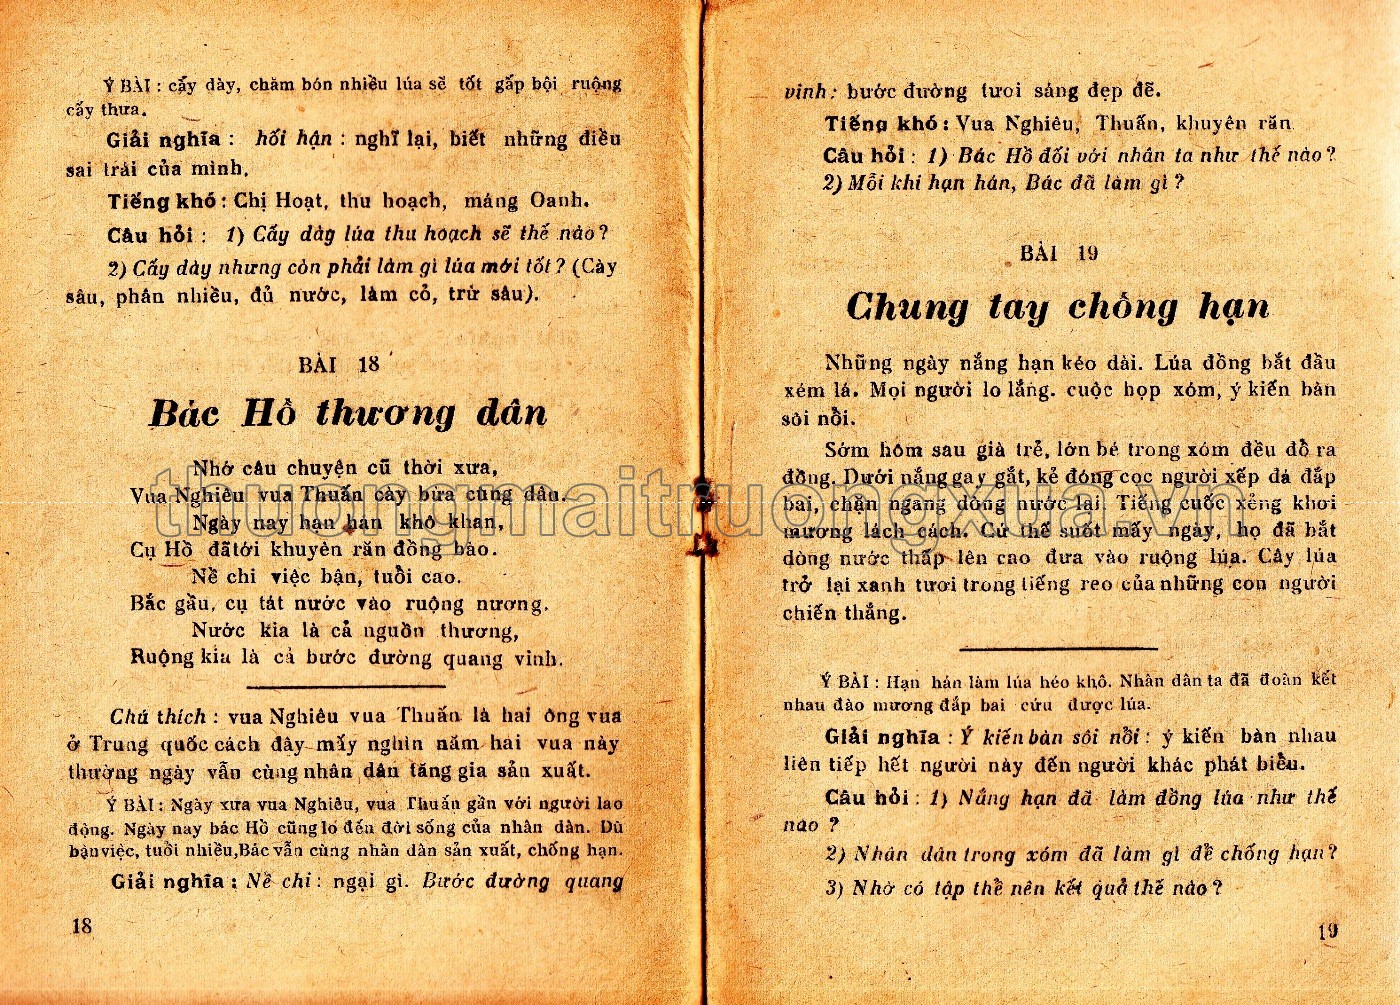 Ý BÀI : cấy dày, chăm bón nhiều lúa sẽ tốt gấp bội ruộng
cấy thưa.
Giải nghĩa : hối hận : nghĩ lại, biết những điều
sai trái của mình.
Tiếng khó : Chị Hoạt, thu hoạch, máng Oanh.
Câu hỏi : 1) Cấy dày lúa thu hoạch sẽ thế nào ?
2) Cấy dày nhưng còn phải làm gì lúa mới tốt ? (Cày
sâu, phân nhiều, đủ nước, làm cỏ, trừ sâu).
BÀI 18
Bác Hồ thương dân
Nhớ câu chuyện cũ thời xưa,
Vua Nghiêu vua Thuấn cày bừa cùng dân.
Ngày nay hạn hán khô khan,
Cụ Hồ đã tới khuyên răn đồng bào.
Nề chi việc bận, tuổi cao.
Bắc gầu, cụ tát nước vào ruộng nương.
Nước kia là cả nguồn thương,
Ruộng kia là cả bước đường quang vinh.
Chú thích : vua Nghiêu vua Thuấn là hai ông vua
ở Trung quốc cách đây mấy nghìn năm hai vua này
thường ngày vẫn cùng nhân dân tăng gia sản xuất.
Ý BÀI : Ngày xưa vua Nghiêu, vua Thuấn gần với người lao
động. Ngày nay bác Hồ cũng lo đến đời sống của nhân dân. Dù
bận việc, tuổi nhiều, Bác vẫn cùng nhân dân sản xuất, chống hạn.
Giải nghĩa : Nề chi : ngại gì. Bước đường quang
18
vinh : bước đường tươi sáng đẹp đẽ.
Tiếng khó : Vua Nghiêu, Thuấn, khuyên răn
Câu hỏi : 1) Bác Hồ đối với nhân ta như thế nào ?
2) Mỗi khi hạn hán, Bác đã làm gì ?
BÀI 19
Chung tay chống hạn
Những ngày nắng hạn kéo dài. Lúa đồng bắt đầu
xém lá. Mọi người lo lắng. cuộc họp xóm, ý kiến bàn
sôi nổi.
Sớm hôm sau già trẻ, lớn bé trong xóm đều đổ ra
đồng. Dưới nắng gay gắt, kẻ đóng cọc người xếp đá đắp
bai, chặn ngang dòng nước lại. Tiếng cuốc xẻng khơi
mương lách cách. Cứ thế suốt mấy ngày, họ đã bắt
dòng nước thấp lên cao đưa vào ruộng lúa. Cây lúa
trở lại xanh tươi trong tiếng reo của những con người
chiến thắng.
Ý BÀI : Hạn hán làm lúa héo khô. Nhân dân ta đã đoàn kết
nhau đào mương đắp bai cứu được lúa.
Giải nghĩa : Ý kiến bàn sôi nổi : ý kiến bàn nhau
liên tiếp hết người này đến người khác phát biểu.
Câu hỏi : 1) Nắng hạn đã làm đồng lúa như thế
nào ?
2) Nhân dân trong xóm đã làm gì để chống hạn ?
3) Nhờ có tập thể nên kết quả thế nào ?
19
thuongmaitruongxua.vn